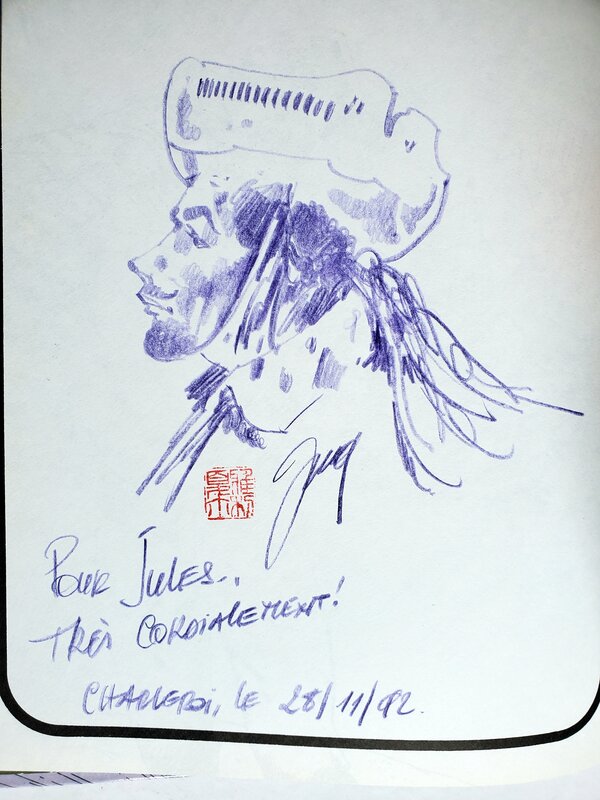 Jung
POUR JULES..
TRÈS CORDIALEMENT!
CHARLEROI, LE 28/11/92.